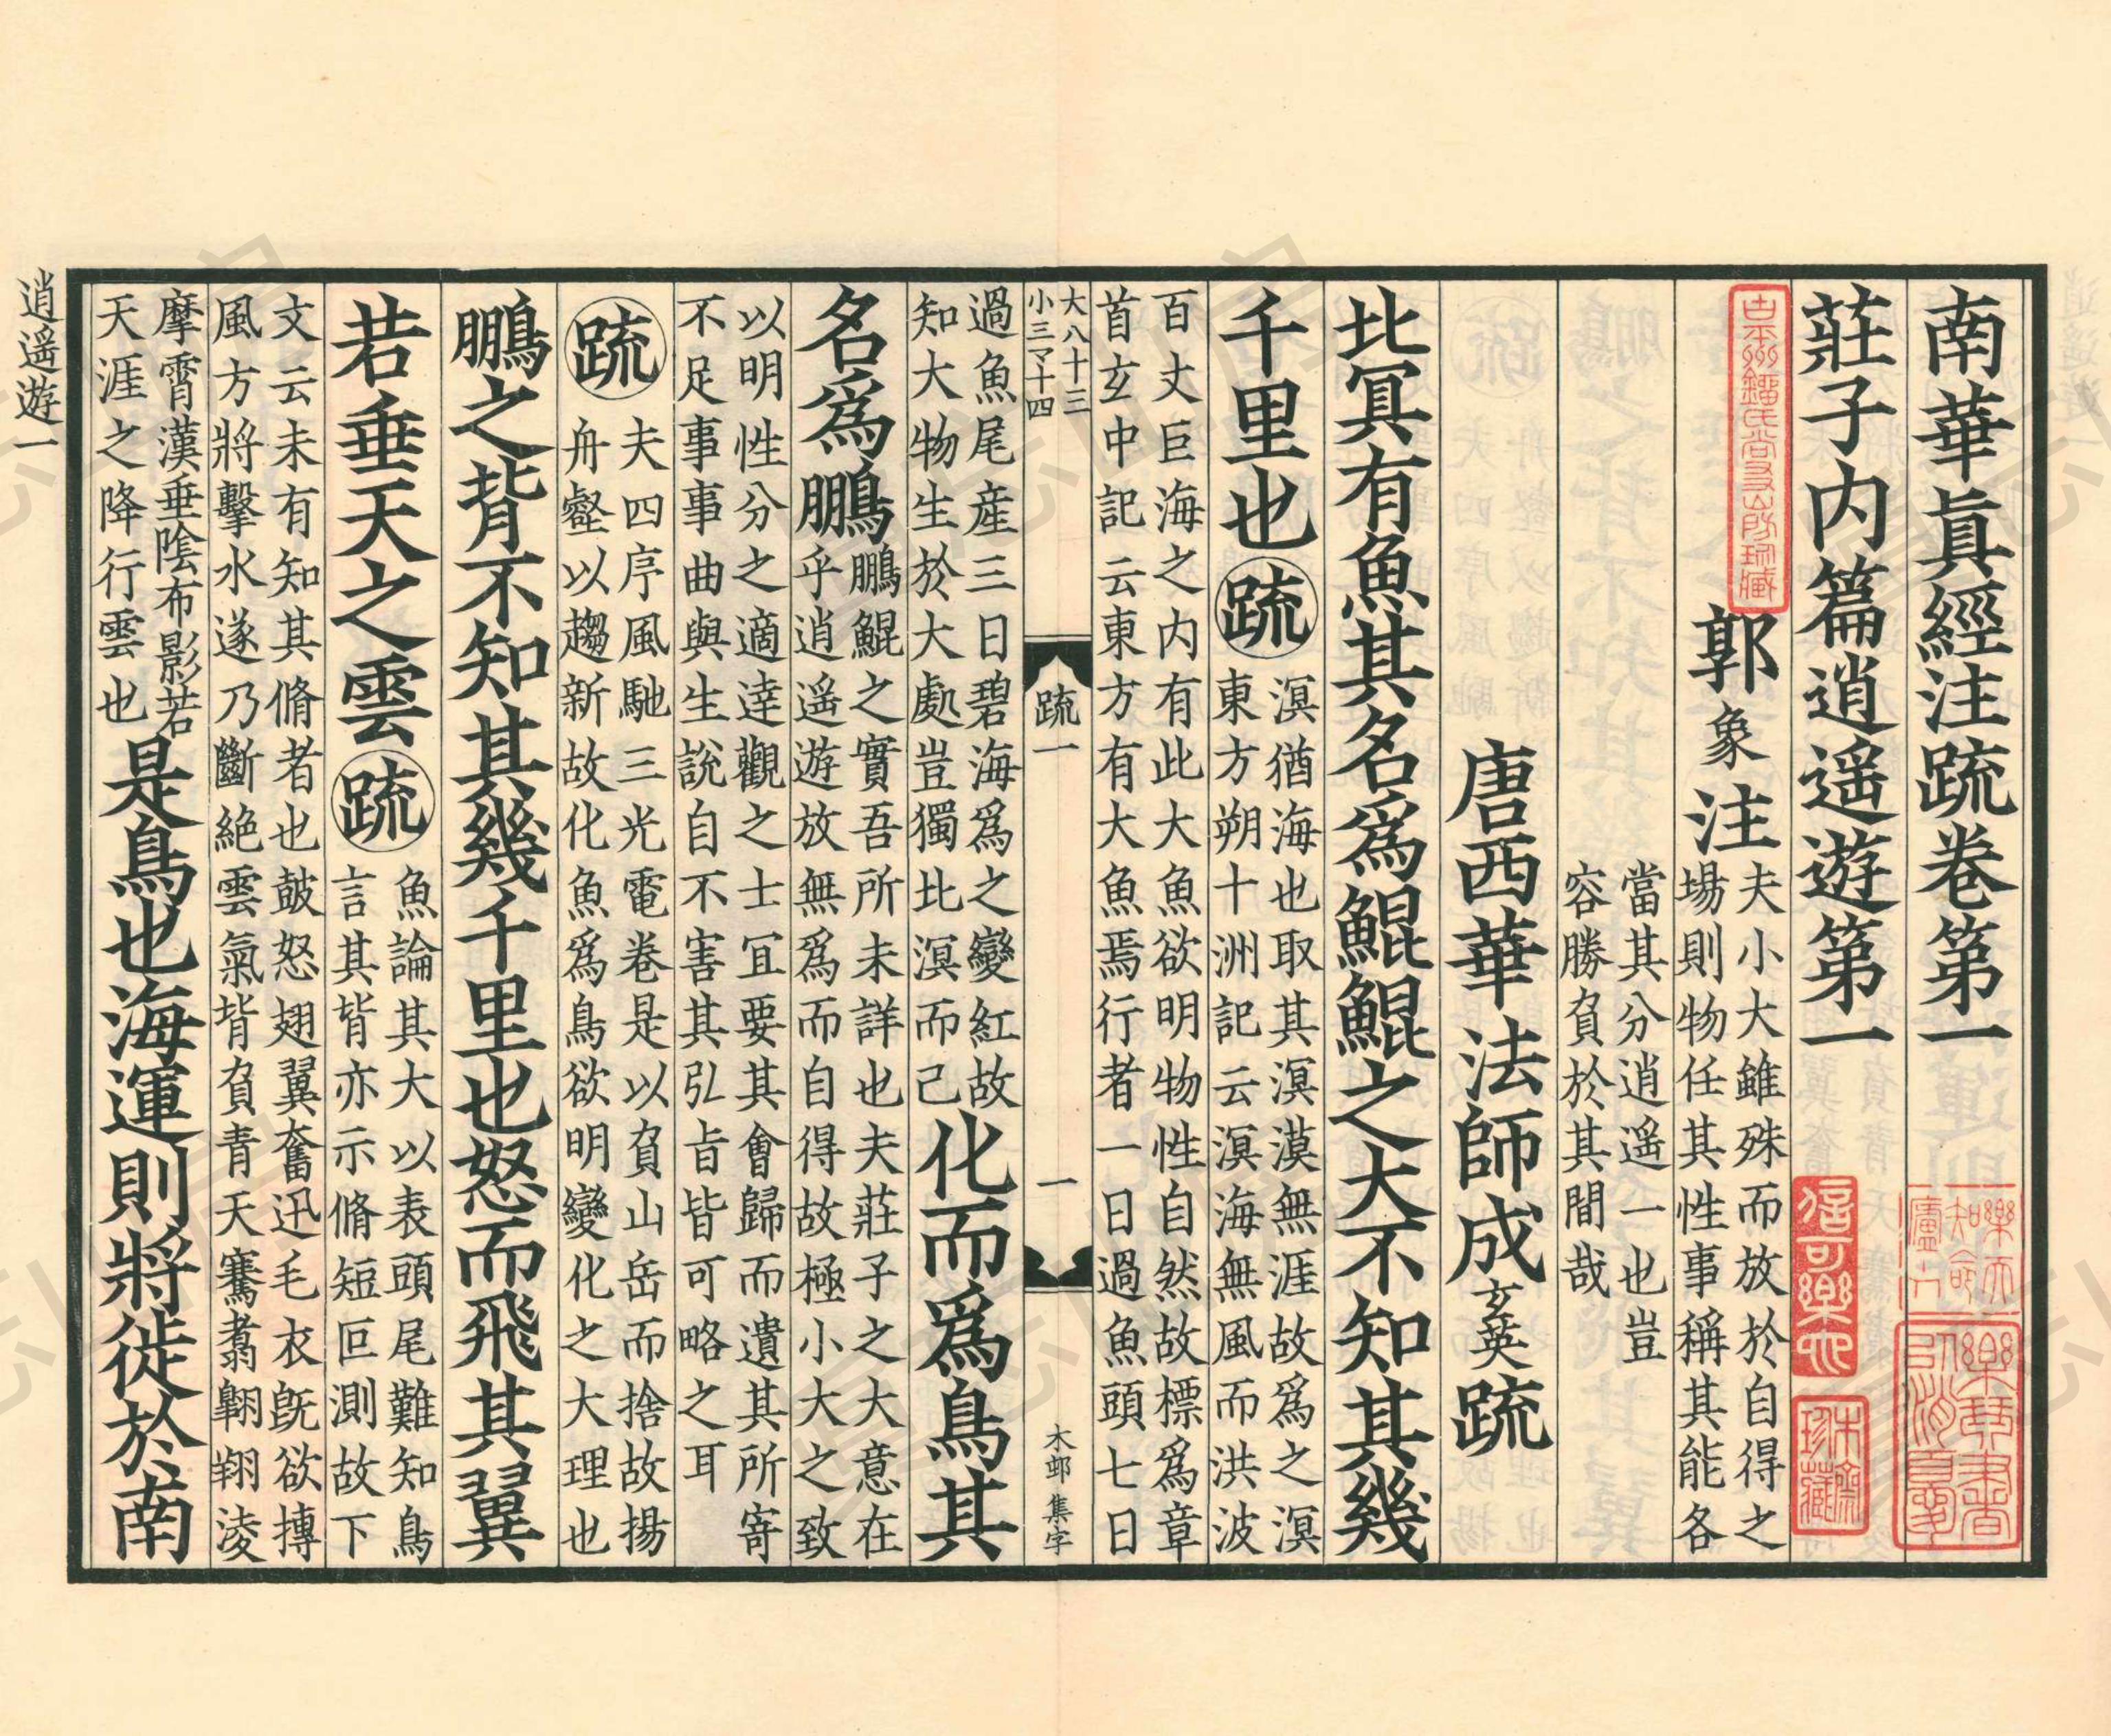 南華眞經注疏卷第一
莊子内篇逍遥遊第一
郭象注
夫小大雖殊而放於自得之
場則物任其性事稱其能各
當其分逍遥一也豈
容勝負於其間哉
唐西華法師成玄英疏
北冥有魚其名爲鯤鯤之大不知其幾
千里也
疏
溟猶海也取其溟漠無涯故爲之溟
東方朔十洲記云溟海無風而洪波
百丈巨海之内有此大魚欲明物性自然故標爲章
首玄中記云東方有大魚焉行者一日過魚頭七日
大八十三
小三マ十四
疏一
一
木郵集字
過魚尾産三日碧海爲之變紅故
知大物生於大處豈獨比溟而己
化而爲鳥其
名爲鵬
鵬鯤之實吾所未詳也夫莊子之大意在
乎逍遥遊放無爲而自得故極小大之致
以明性分之適達觀之士冝要其會歸而遺其所寄
不足事事曲與生說自不害其弘旨皆可略之耳
疏
夫四序風馳三光電卷是以負山岳而捨故揚
舟壑以趨新故化魚爲鳥欲明變化之大理也
鵬之背不知其幾千里也怒而飛其翼
若垂天之雲
疏
魚論其大以表頭尾難知鳥
言其背亦示脩短叵測故下
文云未有知其脩者也鼓怒翅翼奮迅毛衣旣欲摶
風方將擊水遂乃斷絶雲氣背負青天騫翥翺翔淩
摩霄漢垂陰布影若
天涯之降行雲也
是鳥也海運則將徙於南
逍遥遊一
信可樂也
樂琴書以消憂